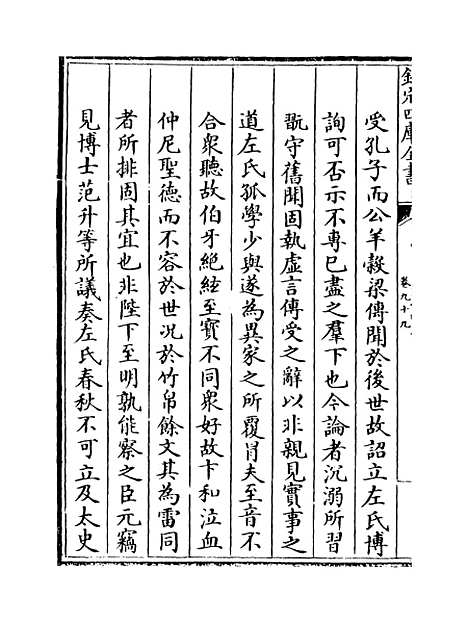 欽定四庫全書
卷九十九
受孔子而公羊穀梁傳聞於後世故詔立左氏博
詢可否示不專已盡之羣下也今論者沉溺所習
翫守舊聞固執虛言傳受之辭以非親見實事之
道左氏孤學少與遂為異家之所覆冐夫至音不
合衆聽故伯牙絶絃至寳不同衆好故卞和泣血
仲尼聖德而不容於世况於竹帛餘文其為雷同
者所排固其宜也非陛下至明孰能察之臣元竊
見博士范升等所議奏左氏春秋不可立及太史